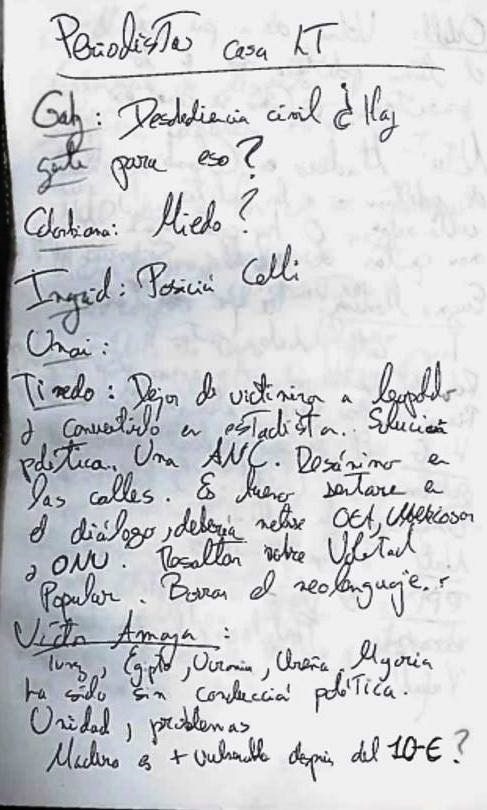 Periodistas casa LT
Gaby: Desobediencia civil ¿Hay
gente para eso?
Colombiana: Miedo?
Ingrid: Posición Celli
Unai:
Tinedo: Dejar de victimizar a Leopoldo
convertirlo en estadista. Solución
política. Una ANC. Desánimo en
las calles. Es bueno sentarse en
el diálogo, debería meterse OEA,
ONU. Resaltar sobre Voluntad
Popular. Borrar el neolenguaje.
Víctor Amaya:
Túnez, Egipto, Ucrania, Ureña. Mayoría
ha sido sin conducción política.
Unidad, problemas
Maduro es + vulnerable después del 10-E?